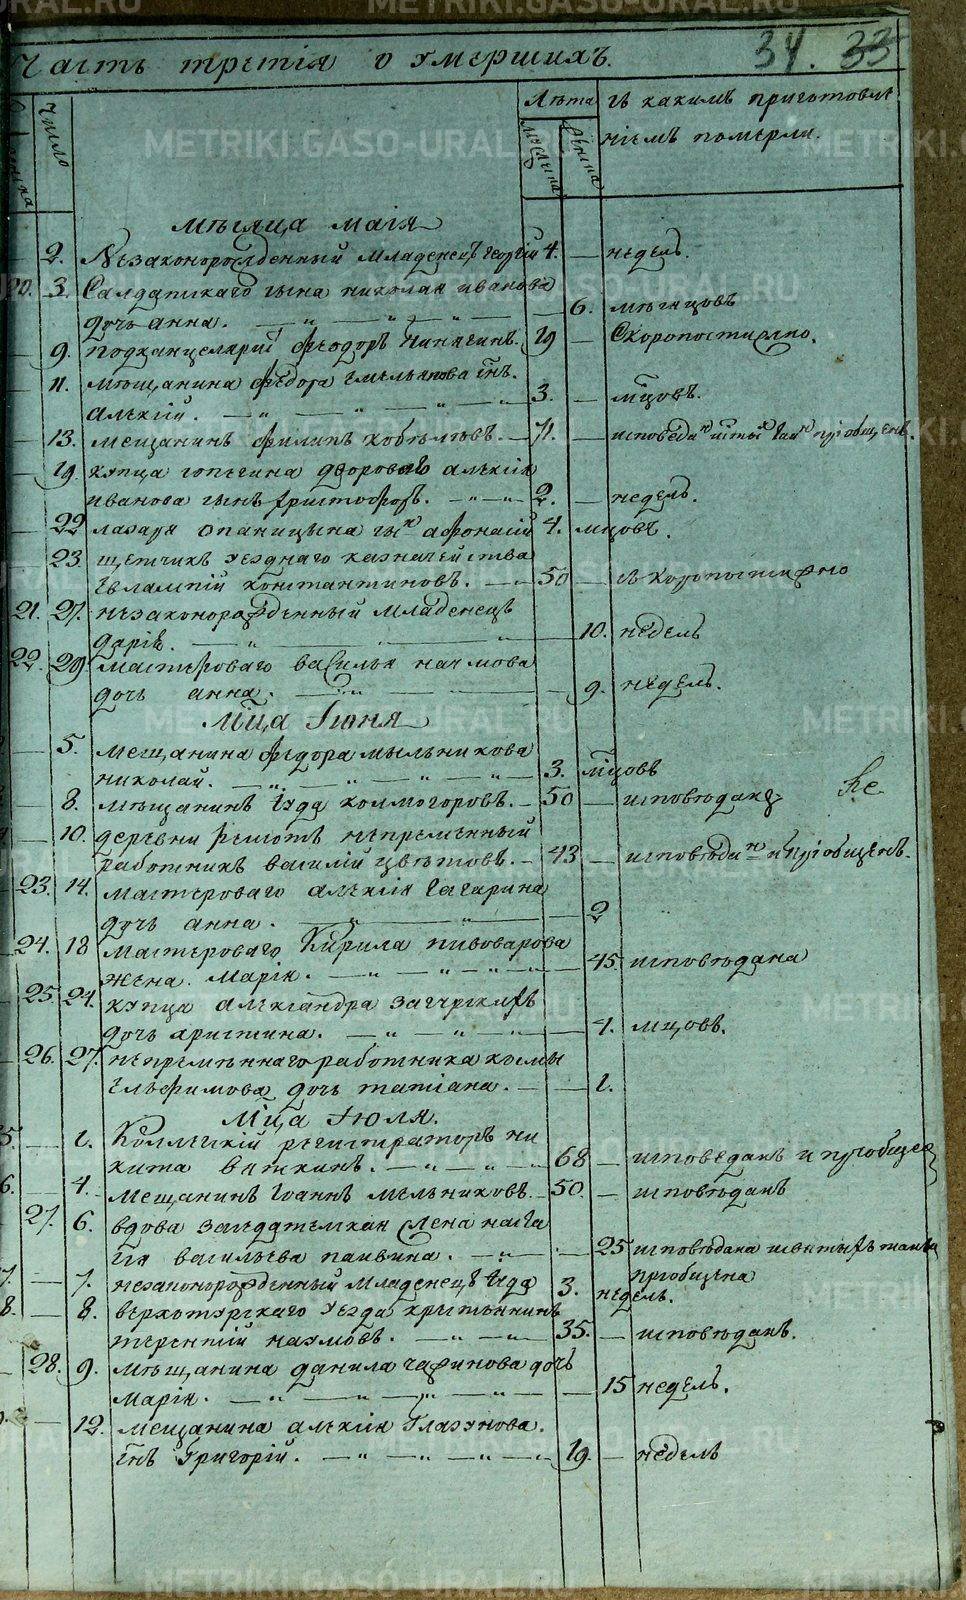 METRIKI.GASO-URAL.RU
Часть третія о умершихъ. 34. 33
Число
Лѣта
мужеска женска
съ какимъ приготовле
ніемъ померли.
мѣсяца маія
2. Незаконорожденный младенецъ георгій 4. — недель.
20. 3. Салдатскаго сына николая иванова
дочь анна. — 6. мѣсяцовъ
— 9. подканцелярист феодоръ 29 — Скоропостижно.
— 11. мѣщанина федора емельянова сгнъ.
алексій. — 3. — мцовъ.
— 13. мещанинъ филипъ кобелевъ. — 71. — исповеданъ и тын пріобщенъ.
— 19. купца дворового алексія
иванова сынъ христофоръ. 2. — недель.
— 22 лазаря опаницына сынъ афонасій 4. мцовъ.
23. щетчикъ уезднаго казначейства
Евлампій константиновъ. — 50 — скоропостижно
21. 27. незаконорожденный младенецъ
дарія. — 10. недель
22. 29. мастероваго василья наумова
дочь анна. — 9. недель.
Мца Іюня
— 5. мещанина федора мыльникова
николай. — 3. мцовъ
— 8. мѣщанинъ Іуда колмогоровъ. — 50 — исповѣданъ
— 10. деревни решетъ непременный
работникъ василій цветовъ. — 43 — исповѣданъ и пріобщенъ.
23. 14. мастероваго алексія Гагарина
дочь анна. — 2
24. 18 мастероваго Кирила пивоварова
жена. марія. — 45. исповѣдана
25. 24. купца александра загурскихъ
дочь христина. — 4. мцовъ.
26. 27. непремѣннаго работника козмы
Ельфимова дочь татіана. — 1.
Мца Іюля.
— 1. Коллежскій регистраторъ ни
кита вяткинъ. — 68 — исповеданъ и пріобще
— 4. мещанинъ Іоаннъ мельниковъ. — 50. — исповѣданъ
27. 6. вдова
васильева паивина. — 25 исповѣдана и святыхъ таинъ
пріобщена
— 7. незаконорожденный младенецъ Іуда 3. недель.
— 8. верхотурскаго уезда крестьянинъ
терентій наумовъ. — 35. — исповѣданъ.
28. 9. мѣщанина данила сафинова дочь
марія. — 15 недель.
— 12. мещанина алексія Глазунова.
снъ Григорій. — 19. — недель